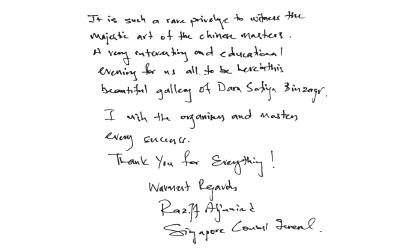 It is such a rare privelge to witness the
majestic art of the chinese masters.
A very interesting and educational
evening for us all to be here in this
beautiful gallery of Dara Safiya Binzagr.
I wish the organisers and masters
every success.
Thank You for Everything!
Warmest Regards
Singapore Consul General.